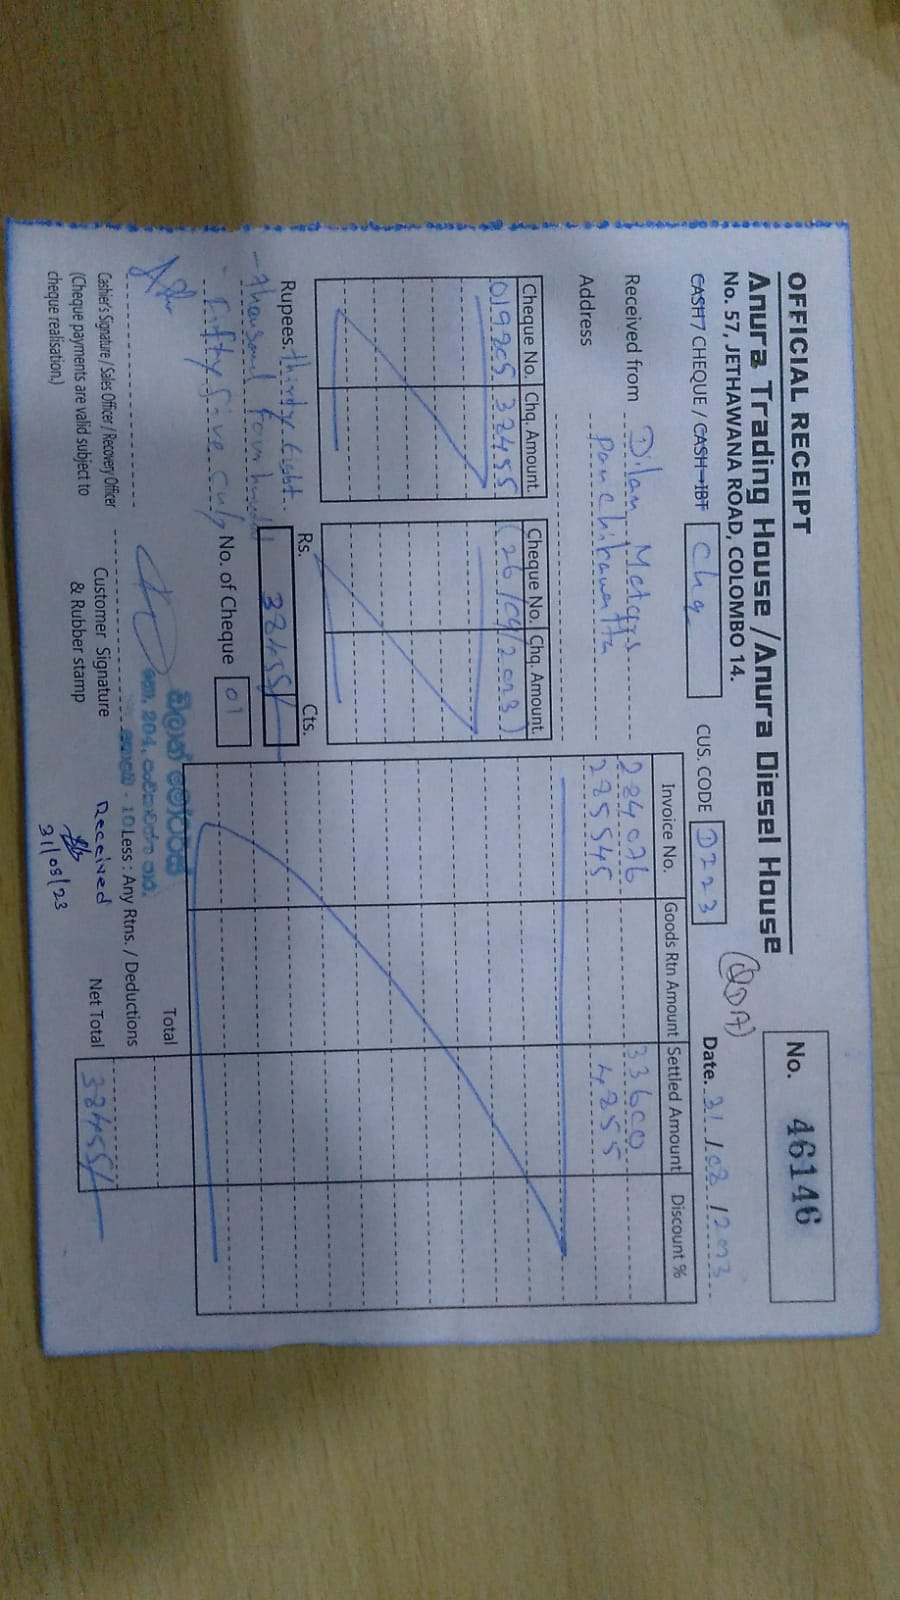 OFFICIAL RECEIPT
No. 46146
Anura Trading House / Anura Diesel House
No. 57, JETHAWANA ROAD, COLOMBO 14.
CASH / CHEQUE / CASH-IBT Chq CUS. CODE D223 Date. 31/08/2023
Received from Dilan Motors
Address Panchikawatta
Cheque No. Chq. Amount. Cheque No. Chq. Amount.
019205 38455 (26/09/2023)
Invoice No. Goods Rtn Amount Settled Amount Discount %
284076 33600
285545 4855
Rs. Cts.
Rupees. thirty Eight 38455/
- thousand Four hundred
- fifty five only No. of Cheque 01
Total
Less : Any Rtns. / Deductions
Net Total 38455/
Cashier's Signature / Sales Officer / Recovery Officer
(Cheque payments are valid subject to
cheque realisation.)
Customer Signature
& Rubber stamp
Received
31/08/23